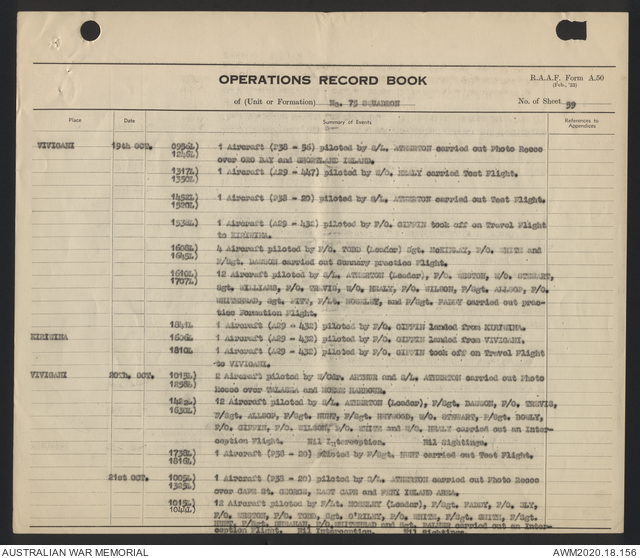 OPERATIONS RECORD BOOK
R.A.A.F. Form A.50
(Feb., '33)
of (Unit or Formation) No. 75 SQUADRON
No. of Sheet 99
Place Date Summary of Events References to Appendices
VIVIGANI 19th OCT. 0956L) 1 Aircraft (P38 - 56) piloted by S/L. ATHERTON carried out Photo Recce
over ORO BAY and ISLAND.
1317L) 1 Aircraft (A29 - 447) piloted by W/O. NEALY carried Test Flight.
1350L)
1452L) 1 Aircraft (P38 - 20) piloted by S/L. ATHERTON carried out Test Flight.
1520L)
1538L) 1 Aircraft (A29 - 432) piloted by F/O. GIFFIN took off on Travel Flight
to KIRIWINA.
1608L) 4 Aircraft piloted by F/O. TODD (Leader) Sgt. McKINLAY, F/O. WHITE and
1645L) F/Sgt. DAWSON carried out Gunnery practice Flight.
1610L) 12 Aircraft piloted by S/L. ATHERTON (Leader), F/O. WESTON, W/O. STEWART,
1707L) Sgt. WILLIAMS, F/O. TRAVIS, W/O. NEALY, F/O. WILSON, F/Sgt. ALLSOP, F/O.
WHITEHEAD, Sgt. PITT, F/Lt. MOSELEY, and F/Sgt. FADDY carried out prac-
tice Formation Flight.
1 Aircraft (A29 - 432) piloted by F/O. GIFFIN landed from KIRIWINA.
KIRIWINA 1606L) 1 Aircraft (A29 - 432) piloted by F/O. GIFFIN landed from VIVIGANI.
1810L 1 Aircraft (A29 - 432) piloted by F/O. GIFFIN took off on Travel Flight
to VIVIGANI.
VIVIGANI 20th. OCT. 1015L) 2 Aircraft piloted by W/Cdr. ARTHUR and S/L. ATHERTON carried out Photo
1256L) Recce over TALASEA and HARBOUR.
12 Aircraft piloted by S/L. ATHERTON (Leader), F/Sgt. DAWSON, F/O. TRAVIS,
1630L) F/Sgt. ALLSOP, F/Sgt. HUNT, F/Sgt. HEYWOOD, W/O. STEWART, F/Sgt.
F/O. GIFFIN, F/O. WILSON, F/O. WHITE and W/O. NEALY carried out an Inter-
ception Flight. Nil Interception. Nil Sightings.
1738L) 1 Aircraft (P38 - 20) piloted by F/Sgt. HUNT carried out Test Flight.
1816L)
21st OCT. 1005L) 1 Aircraft (P38 - 20) piloted by S/L. ATHERTON carried out Photo Recce
1325L) over CAPE St. GEORGE, EAST CAPE and FENI ISLAND AREA.
1015L) 12 Aircraft piloted by F/Lt. MOSELEY (Leader), F/Sgt. FADDY, F/O. SLY,
F/O. WESTON, F/O. TODD, Sgt. O'RILEY, F/O. WHITE, F/Sgt. SMITH, F/Sgt.
HUNT, F/Sgt. F/O. WHITEHEAD and Sgt. carried out an Inter-
ception Flight. Nil Interception. Nil Sightings.
AUSTRALIAN WAR MEMORIAL AWM2020.18.156